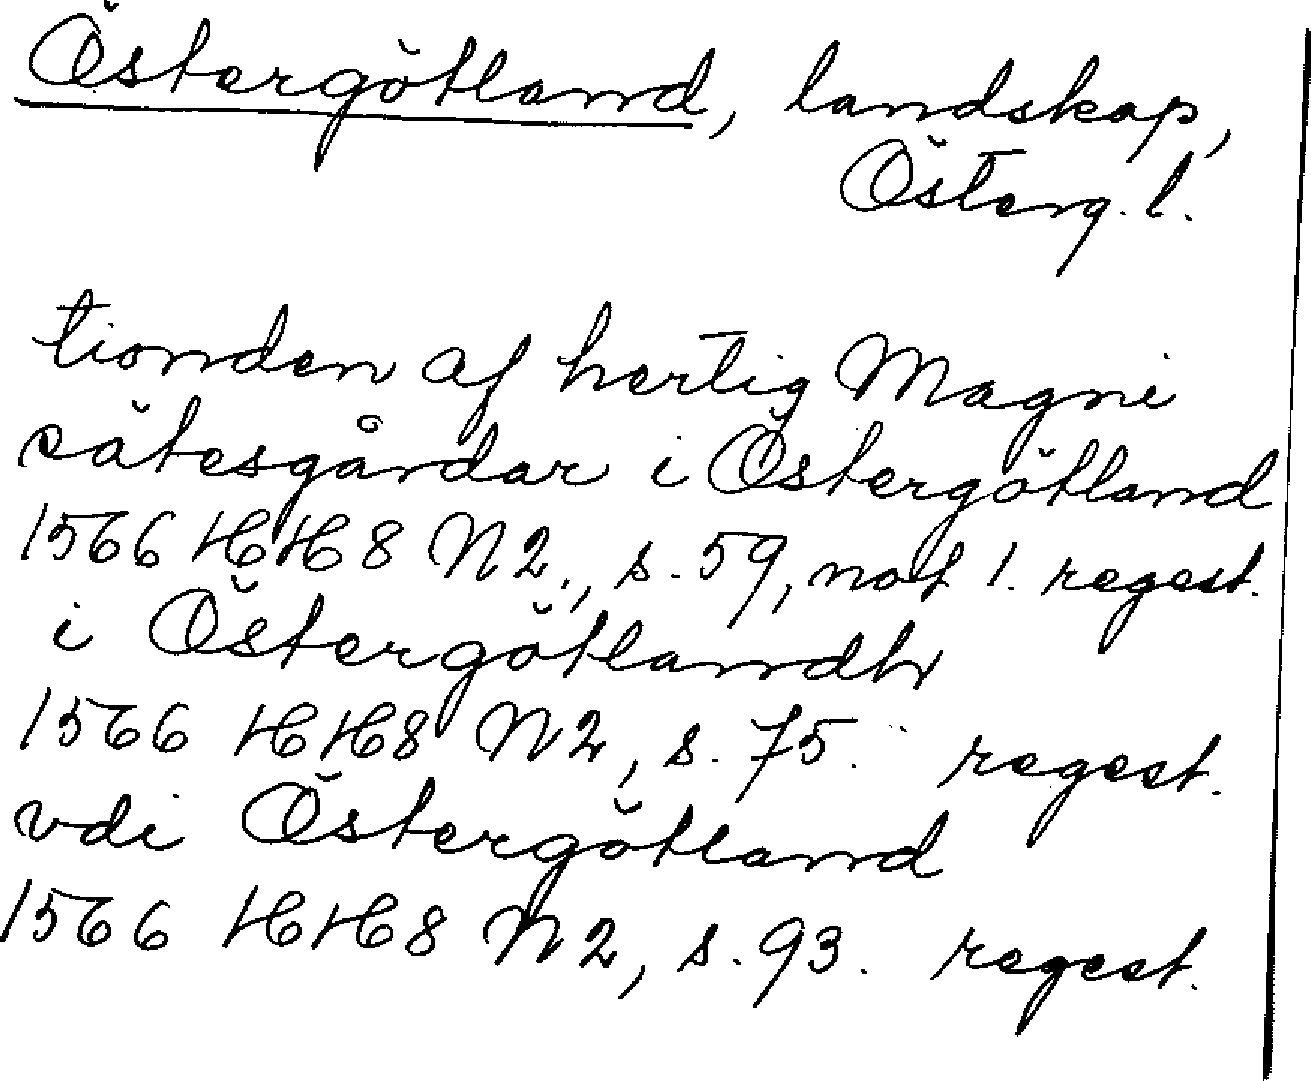 Östergötland, landskap,
Österg. l.
tionden af hertig Magni
sätesgårdar i Östergötland
1566 HH 8 N 2., s. 59, not 1. regest.
i Östergötlandh
1566 HH8 N 2, s. 75. regest.
vdi Östergötland
1566 HH8 N 2, s. 93. regest.